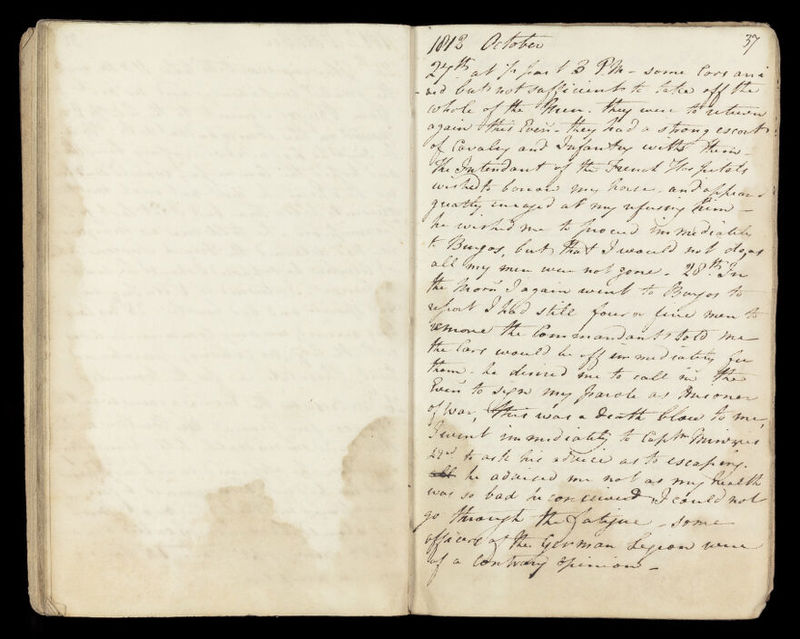 1812 October 37
27th at ½ past 3 PM - some Cars arri
-ved but not sufficient to take off the
whole of the Men. they were to return
again this Even - they had a strong escort
of Cavalry and Infantry with them -
The Intendant of the French Hospitals
wished to borrow my horse, and appeared
greatly enraged at my refusing him -
he wished me to proceed immediately
to Burgos, but that I would not do, as
all my men were not gone. 28th In
the Morn I again went to Burgos to
report I had still four or five men to
remove the Commandant told me
the Cars would be off immediately for
them. he desired me to call in the
Even to sign my parole as Prisoner
of War, this was a death blow to me,
I went immediately to Captn
to ask his advice as to escaping.
he advised me not as my health
was so bad he conceived I could not
go through the fatigue - some
officers of the German Legion were
of a contrary opinion -